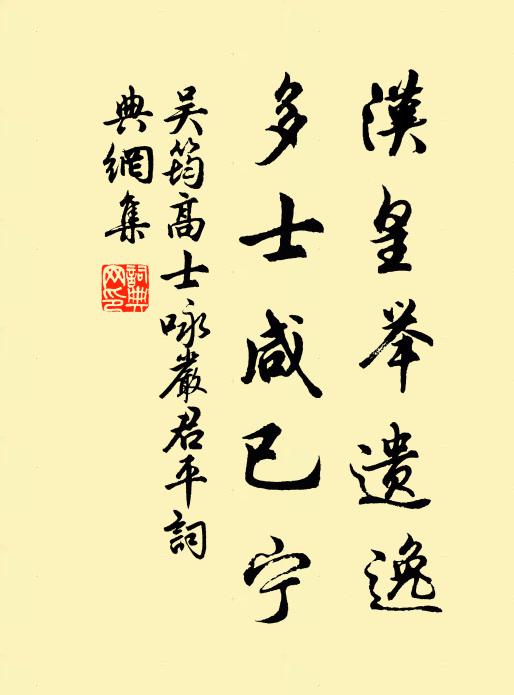 漢皇举遗逸
多士咸已宁
吴筠高士咏嚴君平詞
典網集
詞典网印